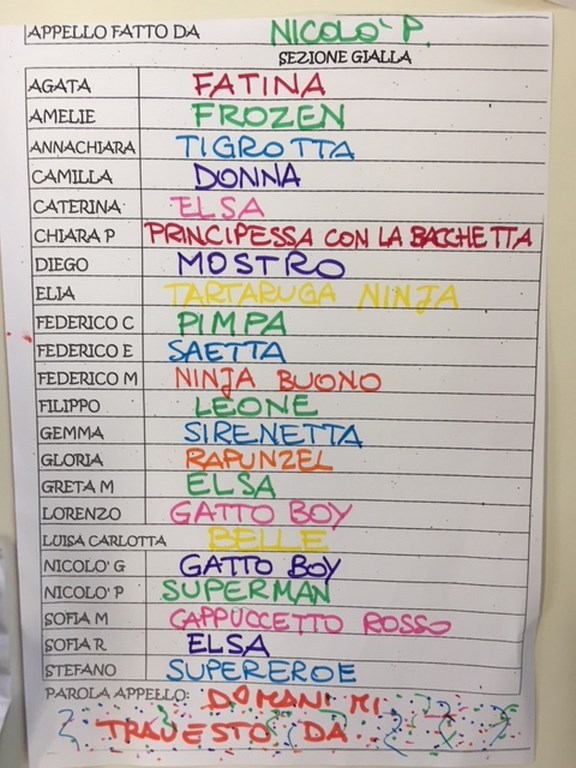 APPELLO FATTO DA NICOLO' P.
SEZIONE GIALLA
AGATA FATINA
AMELIE FROZEN
ANNACHIARA TIGROTTA
CAMILLA DONNA
CATERINA ELSA
CHIARA P PRINCIPESSA CON LA BACCHETTA
DIEGO MOSTRO
ELIA TARTARUGA NINJA
FEDERICO C PIMPA
FEDERICO E SAETTA
FEDERICO M NINJA BUONO
FILIPPO LEONE
GEMMA SIRENETTA
GLORIA RAPUNZEL
GRETA M ELSA
LORENZO GATTO BOY
LUISA CARLOTTA BELLE
NICOLO' G GATTO BOY
NICOLO' P SUPERMAN
SOFIA M CAPPUCCETTO ROSSO
SOFIA R ELSA
STEFANO SUPEREROE
PAROLA APPELLO: DOMANI MI
TRAVESTO DA...